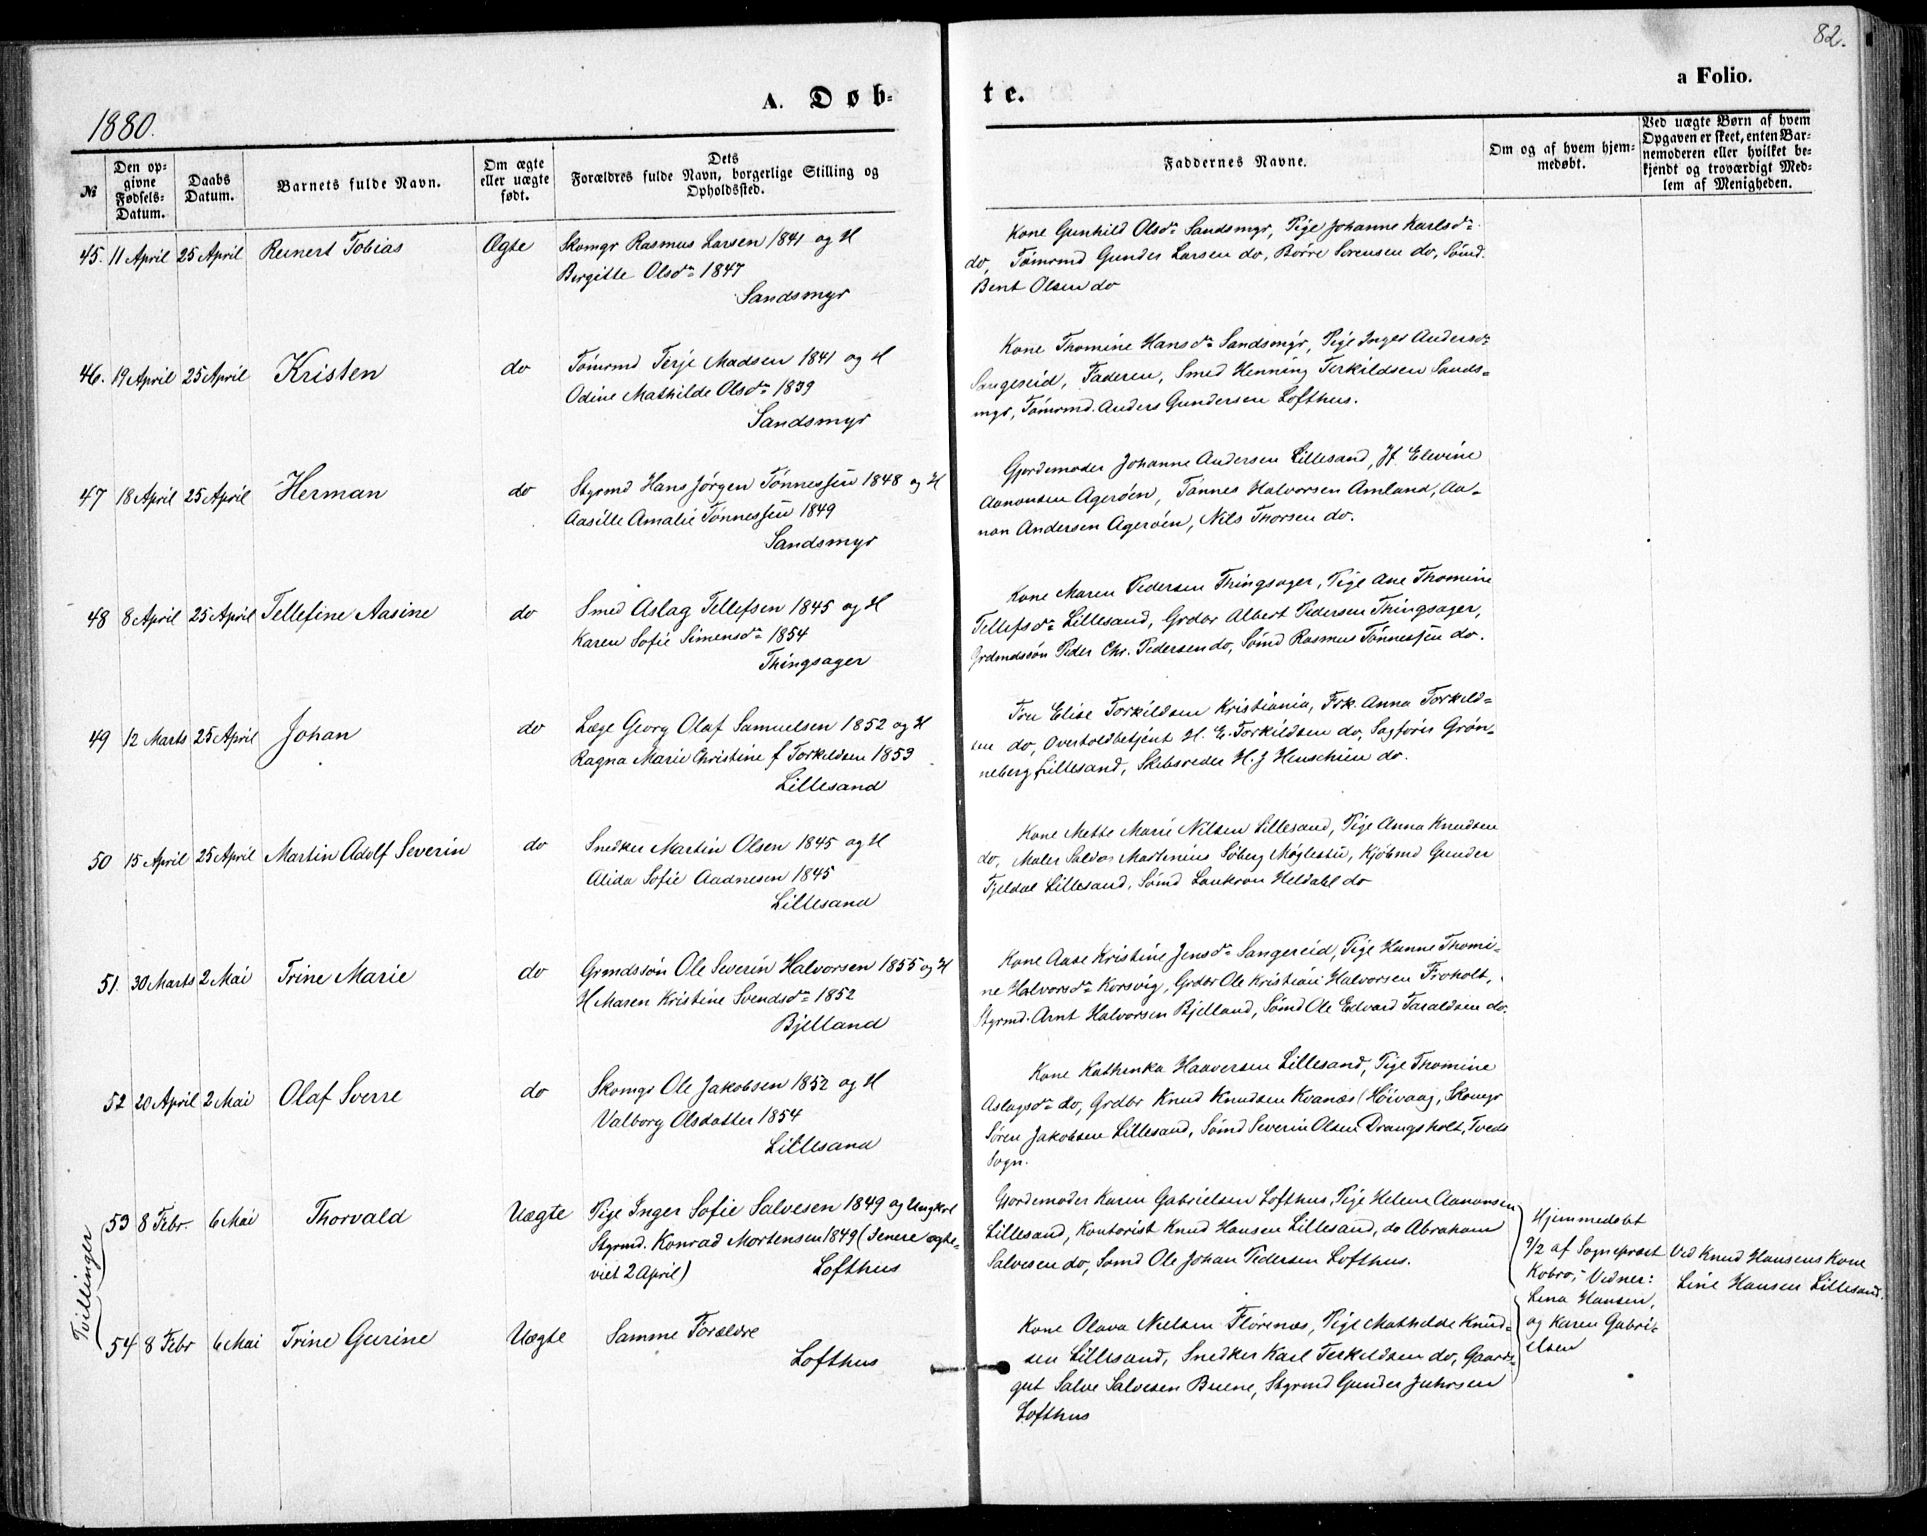 82.
a Folio.
A. Døb-
te.
1880.
№
Den op-
givne
Fødsels-
Datum.
Daabs
Datum.
Barnets fulde Navn.
Om ægte
eller uægte
født.
Dets
Forældres fulde Navn, borgerlige Stilling og
Opholdssted.
Faddernes Navne.
Om og af hvem hjem-
medøbt.
Ved uægte Børn af hvem
Opgaven er skeet, enten Bar-
nemoderen eller hvilket be-
kjendt og troværdigt Med-
lem af Menigheden.
45. 11 April 25 April Reinert Tobias Ægte Skomgr Rasmus Larsen 1841 og H
Birgitte Olsdr 1847
Sandsmyr
Kone Gunhild Olsdr Sandsmyr, Pige Johanne Karlsdr
do, Tømrmd Gunder Larsen do, Børre Sørensen do, Sømd.
Bent Olsen do
46. 19 April 25 April Kristen do Tømrmd Terje Madsen 1841 og H
Odine Mathilde Olsdr 1839
Sandsmyr
Kone Thomine Hansdr Sandsmyr, Pige Inger Andersdr
Sangereid, Faderen, Smed Henning Terkildsen Sands-
myr, Tømrmd. Anders Gundersen Lofthus.
47 18 April 25 April Herman do Styrmd Hans Jørgen Tønnessen 1848 og H
Aasille Amalie Tønnessen 1849
Sandsmyr
Gjordemoder Johanne Andersen Lillesand, Jf. Elevine
Aanonsen Agerøen, Tønnes Halvorsen Amland, Aa-
non Andersen Agerøen, Nils Thorsen do.
48 8 April 25 April Tellefine Aasine do Smed Aslag Tellefsen 1845 og H
Karen Sofie Simensdr 1854
Thingsager
Kone Maren Pedersen Thingsager, Pige Ane Thomine
Tellefsdr Lillesand, Grdbr Albert Pedersen Thingsager,
Grdmdssøn Peder Chr. Pedersen do, Sømd Rasmus Tønnessen do.
49 12 Marts 25 April Johan do Læge Georg Olaf Samuelsen 1852 og H
Ragna Marie Christine f Torkildsen 1859
Lillesand
Fru Elise Torkildsen Kristiania, Frk. Anna Torkild-
sen do, Overtoldbetjent H. E. Torkildsen do, Sagfører Grøn-
neberg Lillesand, Skibsreder H. J Henschien do.
50 15 April 25 April Martin Adolf Severin do Snedker Martin Olsen 1845 og H
Alida Sofie Aadnesen 1845
Lillesand
Kone Mette Marie Nilsen Lillesand, Pige Anna Knudsen
do, Maler Salve Martinius Søberg Møglestu, Kjøbmd Gunder
Fjeldal Lillesand, Sømd Laukron Heldahl do
51. 30 Marts 2 Mai Trine Marie do Grmdssøn Ole Severin Halvorsen 1855 og H
H Maren Kristine Svendsdr 1852
Bjelland
Kone Aase Kristine Jensdr Sangereid, Pige Hanne Thomi-
ne Halvorsdr Korsvig, Grdbr Ole Kristian Halvorsen Froholt,
Styrmd. Arnt Halvorsen Bjelland, Sømd Ole Edvard Taraldsen do.
52 20 April 2 Mai Olaf Sverre do Skomgr Ole Jakobsen 1852 og H
Valborg Olsdatter 1854
Lillesand
Kone Kathenka Haaversen Lillesand, Pige Thomine
Aslagsdr do, Grdbr Knud Knudsen Kvanæs (Høivaag, Skomgr
Søren Jakobsen Lillesand, Sømd Severin Olsen Drangsholt, Tveds
Sogn.
Tvillinger
53 8 Febr. 6 Mai Thorvald Uægte Pige Inger Sofie Salvesen 1849 og Ungkrl
Styrmd. Konrad Mortensen 1849 (Senere ægte-
viet 2 April) Lofthus
Gjordemoder Karen Gabrielsen Lofthus, Pige Helene Aanonsen
Lillesand, Kontorist Knud Hansen Lillesand, do Abraham
Salvesen do, Sømd Ole Johan Pedersen Lofthus.
Hjemmedøbt
9/2 af Sogneprest
Kobro; Vidner:
Lina Hansen,
og Karen Gabri-
elsen
Ved Knud Hansens Kone
Line Hansen Lillesand.
54 8 Febr 6 Mai Trine Gurine Uægte Samme Forældre
Lofthus
Kone Olava Nielsen Florenæs, Pige Mathilde Knud-
sen Lillesand, Snedker Karl Terkildsen do, Gaard-
gut Salve Salvesen Buene, Styrmd Gunder Juhrsen
Lofthus